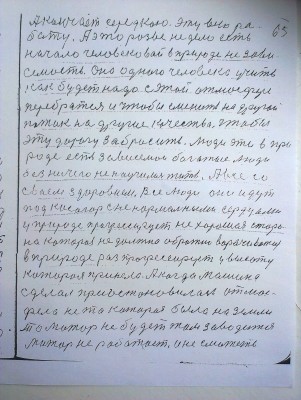 А кончает середкою. Эту его ра- 63
боту. А это разве не дело есть
начало человековой в природе не зави
симость. Оно одного человека учить
как будет надо с этой атмосфере
перебрятся и чтобы сменить на другой
поток на другие качества, чтобы
эту дорогу забросить. Люди эти в при
роде есть зависемои богатые люди
без ничего не научились жить. А все со
своем здоровием. Все люди они идут
под косогор с не нормальными сердцами
у природе прогрессирует не хорошая старо
на которая не должна обратно ворочать
в природе раз прогрессирует у высоту
которая пришла. А когда машина
сделал приостоновелась атмос-
фера не та которая была на земли
то мотор не будет там заводется
мотор не работает, а не сможеть